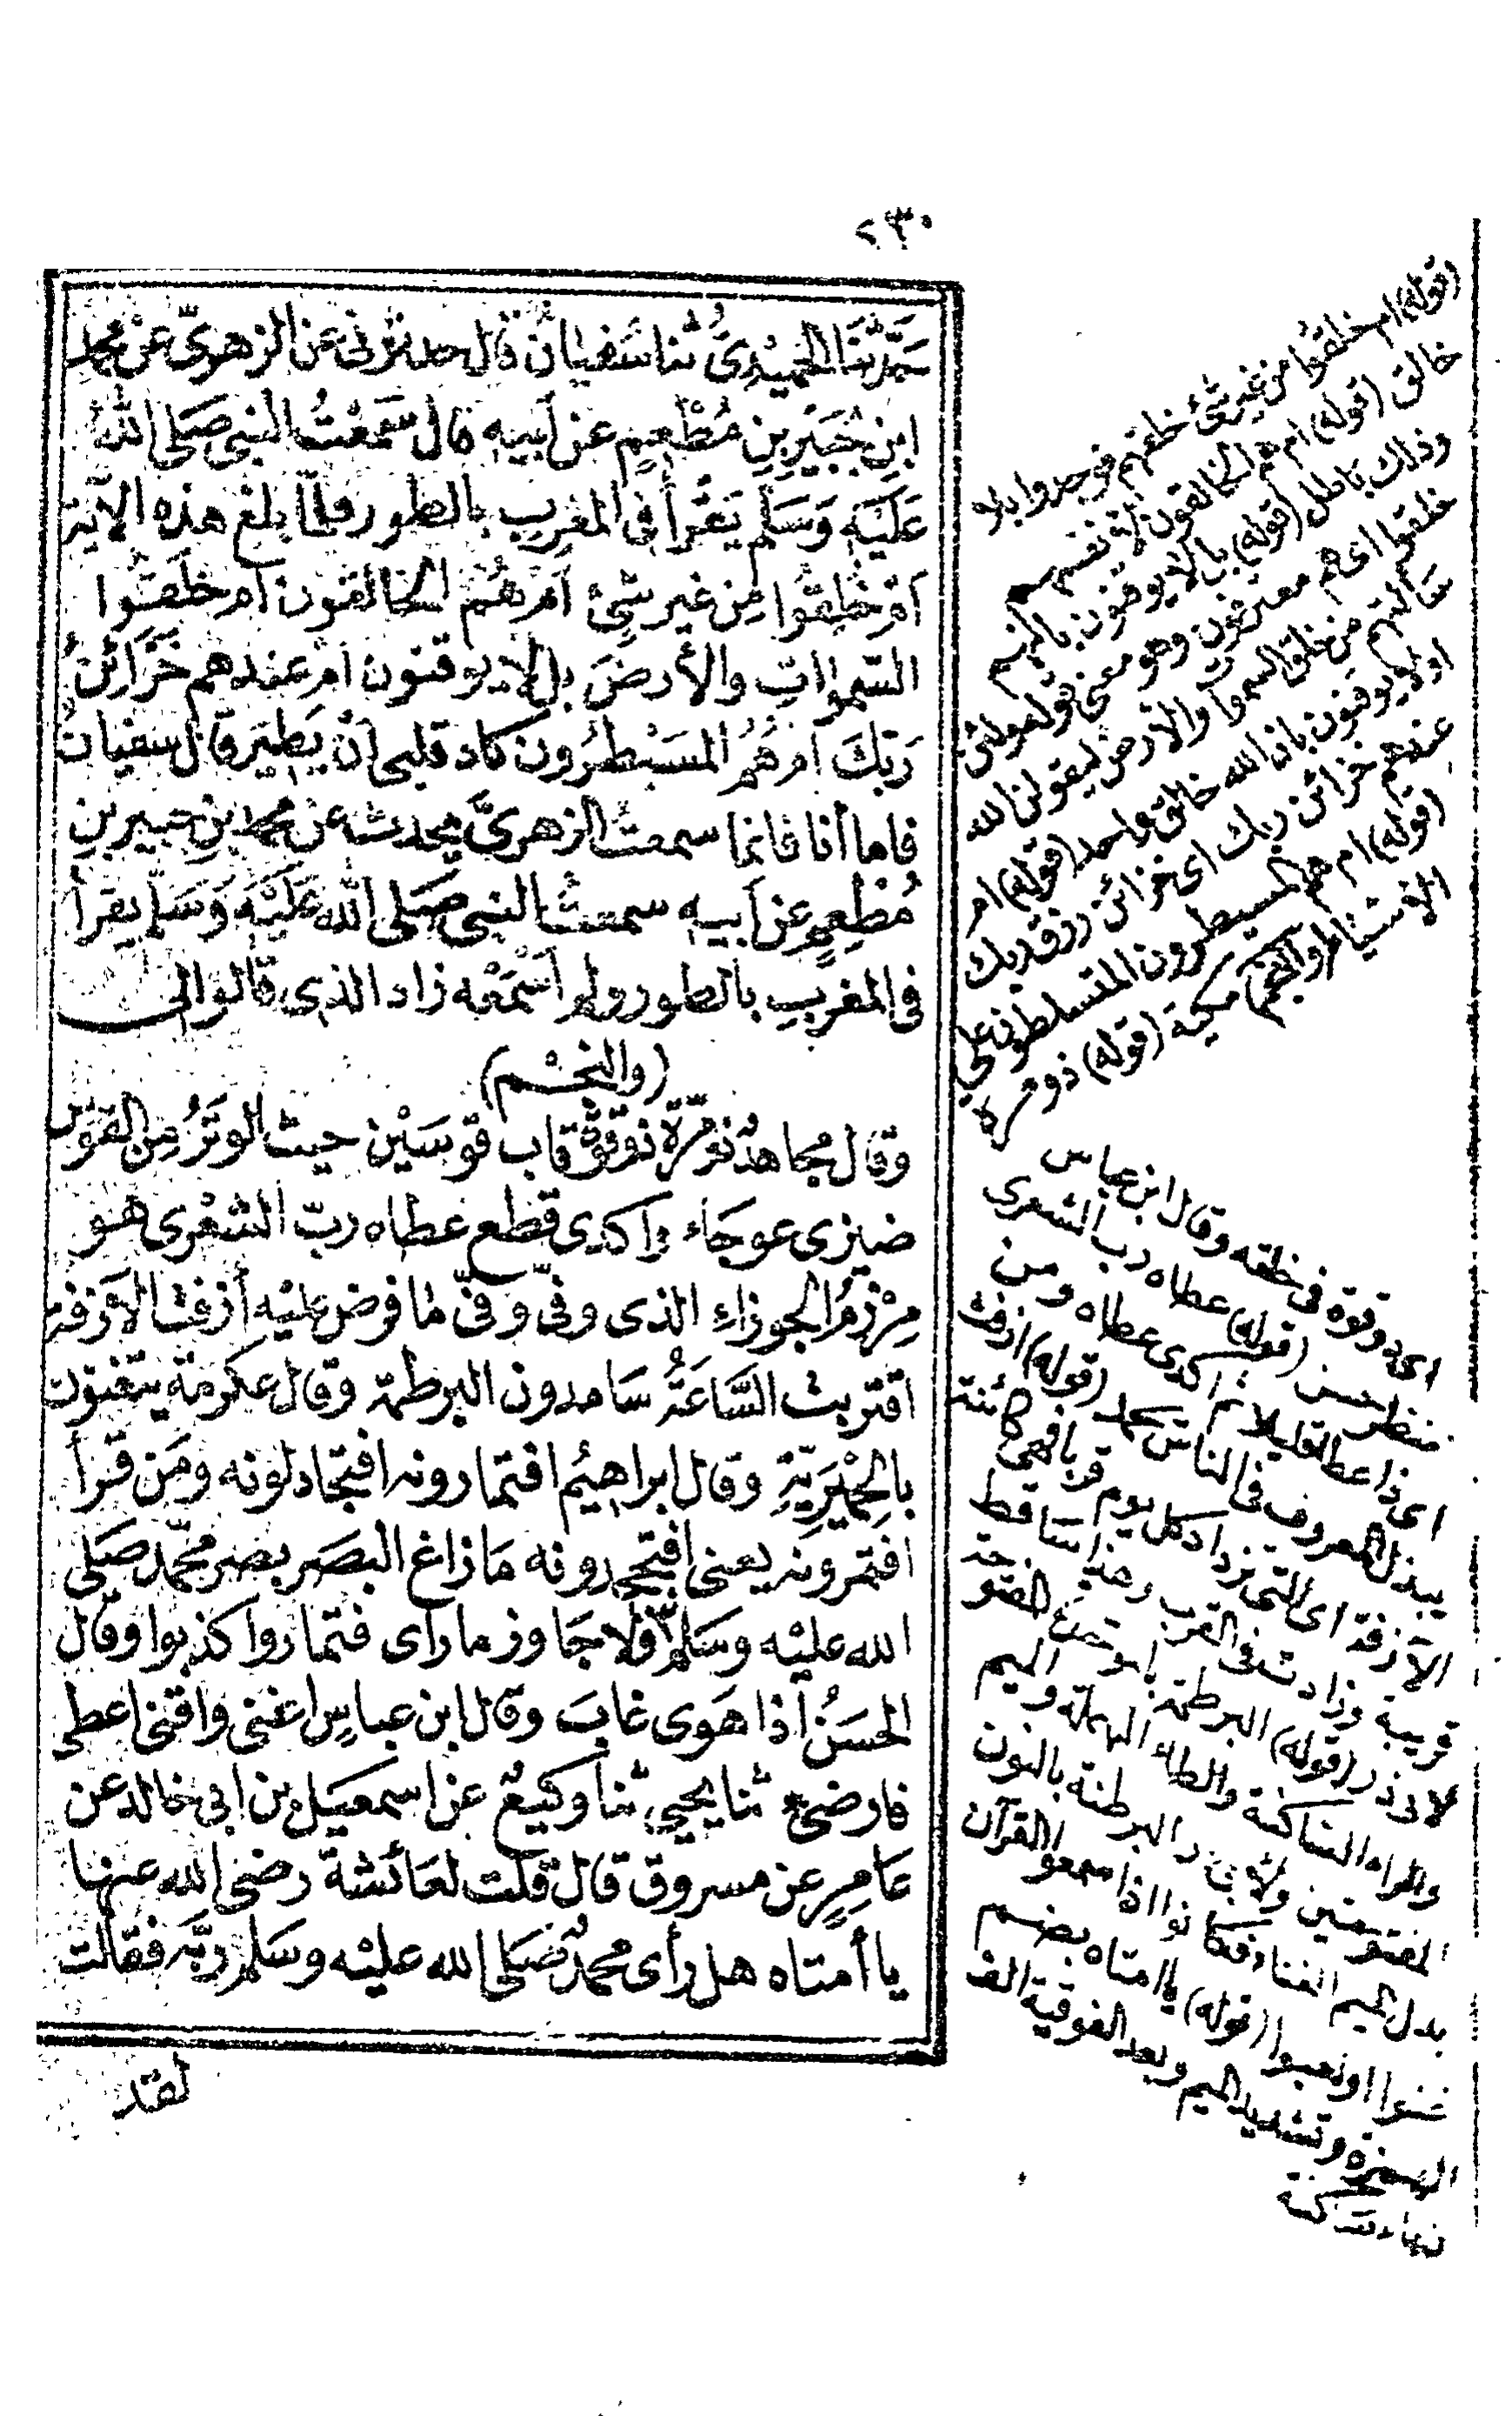 ٢٣٠
حَدَّثَنَا الحُمَيْدِيُّ ثنا سُفيانُ قال حدثونى عن الزهرىّ عن محمد
ابنِ جُبَيْرِ بنِ مُطْعِمٍ عن أبيه قال سَمِعْتُ النبى صَلى اللهُ
عَلَيْه وَسَلم يَقْرأ فى المغربِ بالطور فلمّا بلغ هذه الآية
اَمْ خُلِقُوا مِن غير شَىْءٍ اَمْ هُمُ الخالقون اَم خَلَقُوا
السّمواتِ والأرضَ بل لا يوقنون ام عندهم خَزَائِنُ
رَبّكَ اَم هُمُ المسَيْطرُون كاد قلبى أن يَطِيرَ قال سفيان
فاما أنا فانما سمعتُ الزهرىَّ يحدث عن محمد بنِ جبير بنِ
مُطْعِمٍ عن اَبيه سمعت النبى صَلى الله عَلَيْه وَسَلم يقرأ
فى المغربِ بالطور ولم اَسْمَعْه زاد الذى قالوا لى
(والنجْم)
وقال مجاهدٌ ذو مِرّة ذو قوّة قاب قوسَيْن حيث الوتَرُ مِن القوْس
ضيزى عوجَاء واكدى قطع عطاه ربّ الشعْرى هو
مِرْزمُ الجوزاءِ الذى وفّى وفّى ما فرض عليْه أزفت الآزفة
اقتربت السَّاعَةُ سَامدون البرطمة وقال عكرمة يتغنون
بالحِمْيَرِيّةِ وقال ابراهيُم افتمارونه افتجادلونه ومَن قرأ
افتمرونه يعنى افتجحدونه مَا زاغ البصَر بصر محمّد صَلى
الله عليْه وسَلم ولا جَاوز ما رأى فتماروا كذبوا وقال
الحسَنُ اذا هَوى غابَ وقال ابن عباسٍ اغنى واقنى اعطى
فارضى ثنا يحيى ثنا وكيعٌ عن اسمعيَل بن ابى خالد عن
عَامِرٍ عن مسروق قال قلت لعَائشة رضى الله عنها
يا أمتاه هل رأى محمدٌ صَلى الله عليْه وسَلم ربّه فقالت
لقد
(قوله) ام خلقوا من غير شئ خلقهم فوجدوا بلا
خالق (قوله) ام هم الخالقون لانفسهم
وذلك باطل (قوله) بل لا يوقنون بانهم
خلقوا اى هم معترفون وهو معنى قوله ولئن
سألتهم من خلق السموات والارض ليقولن الله
او لا يوقنون بان الله خالق واحد (قوله) ام
عندهم خزائن ربك اى خزائن رزق ربك
(قوله) ام هم المسيطرون المتسلطون على
الاشياء والنجم مكية (قوله) ذو مرة
اى ذو قوة فى خلقه وقال ابن عباس
منظر حسن (قوله) عطاه رب الشعرى
اى ذا عطا قليلا ثم اكدى عطاه ومن
يبذل المعروف فى الناس يحمد (قوله) ازفت
الآزفة اى التى تزداد كل يوم قربا فهى كائنة
قريبة وزادت فى القرب وهذا ساقط
لابى ذر (قوله) البرطمة بالموحدة المفتوحة
والراء الساكنة والطاء المهملة والميم
المفتوحتين ولابى ذر البرطنة بالنون
بدل الميم الغناء فكانوا اذا سمعوا القرآن
غنوا او لعبوا (قوله) يا امتاه بضم
الهمزة وتشديد الميم وبعد الفوقية الف
فهاء ساكنة